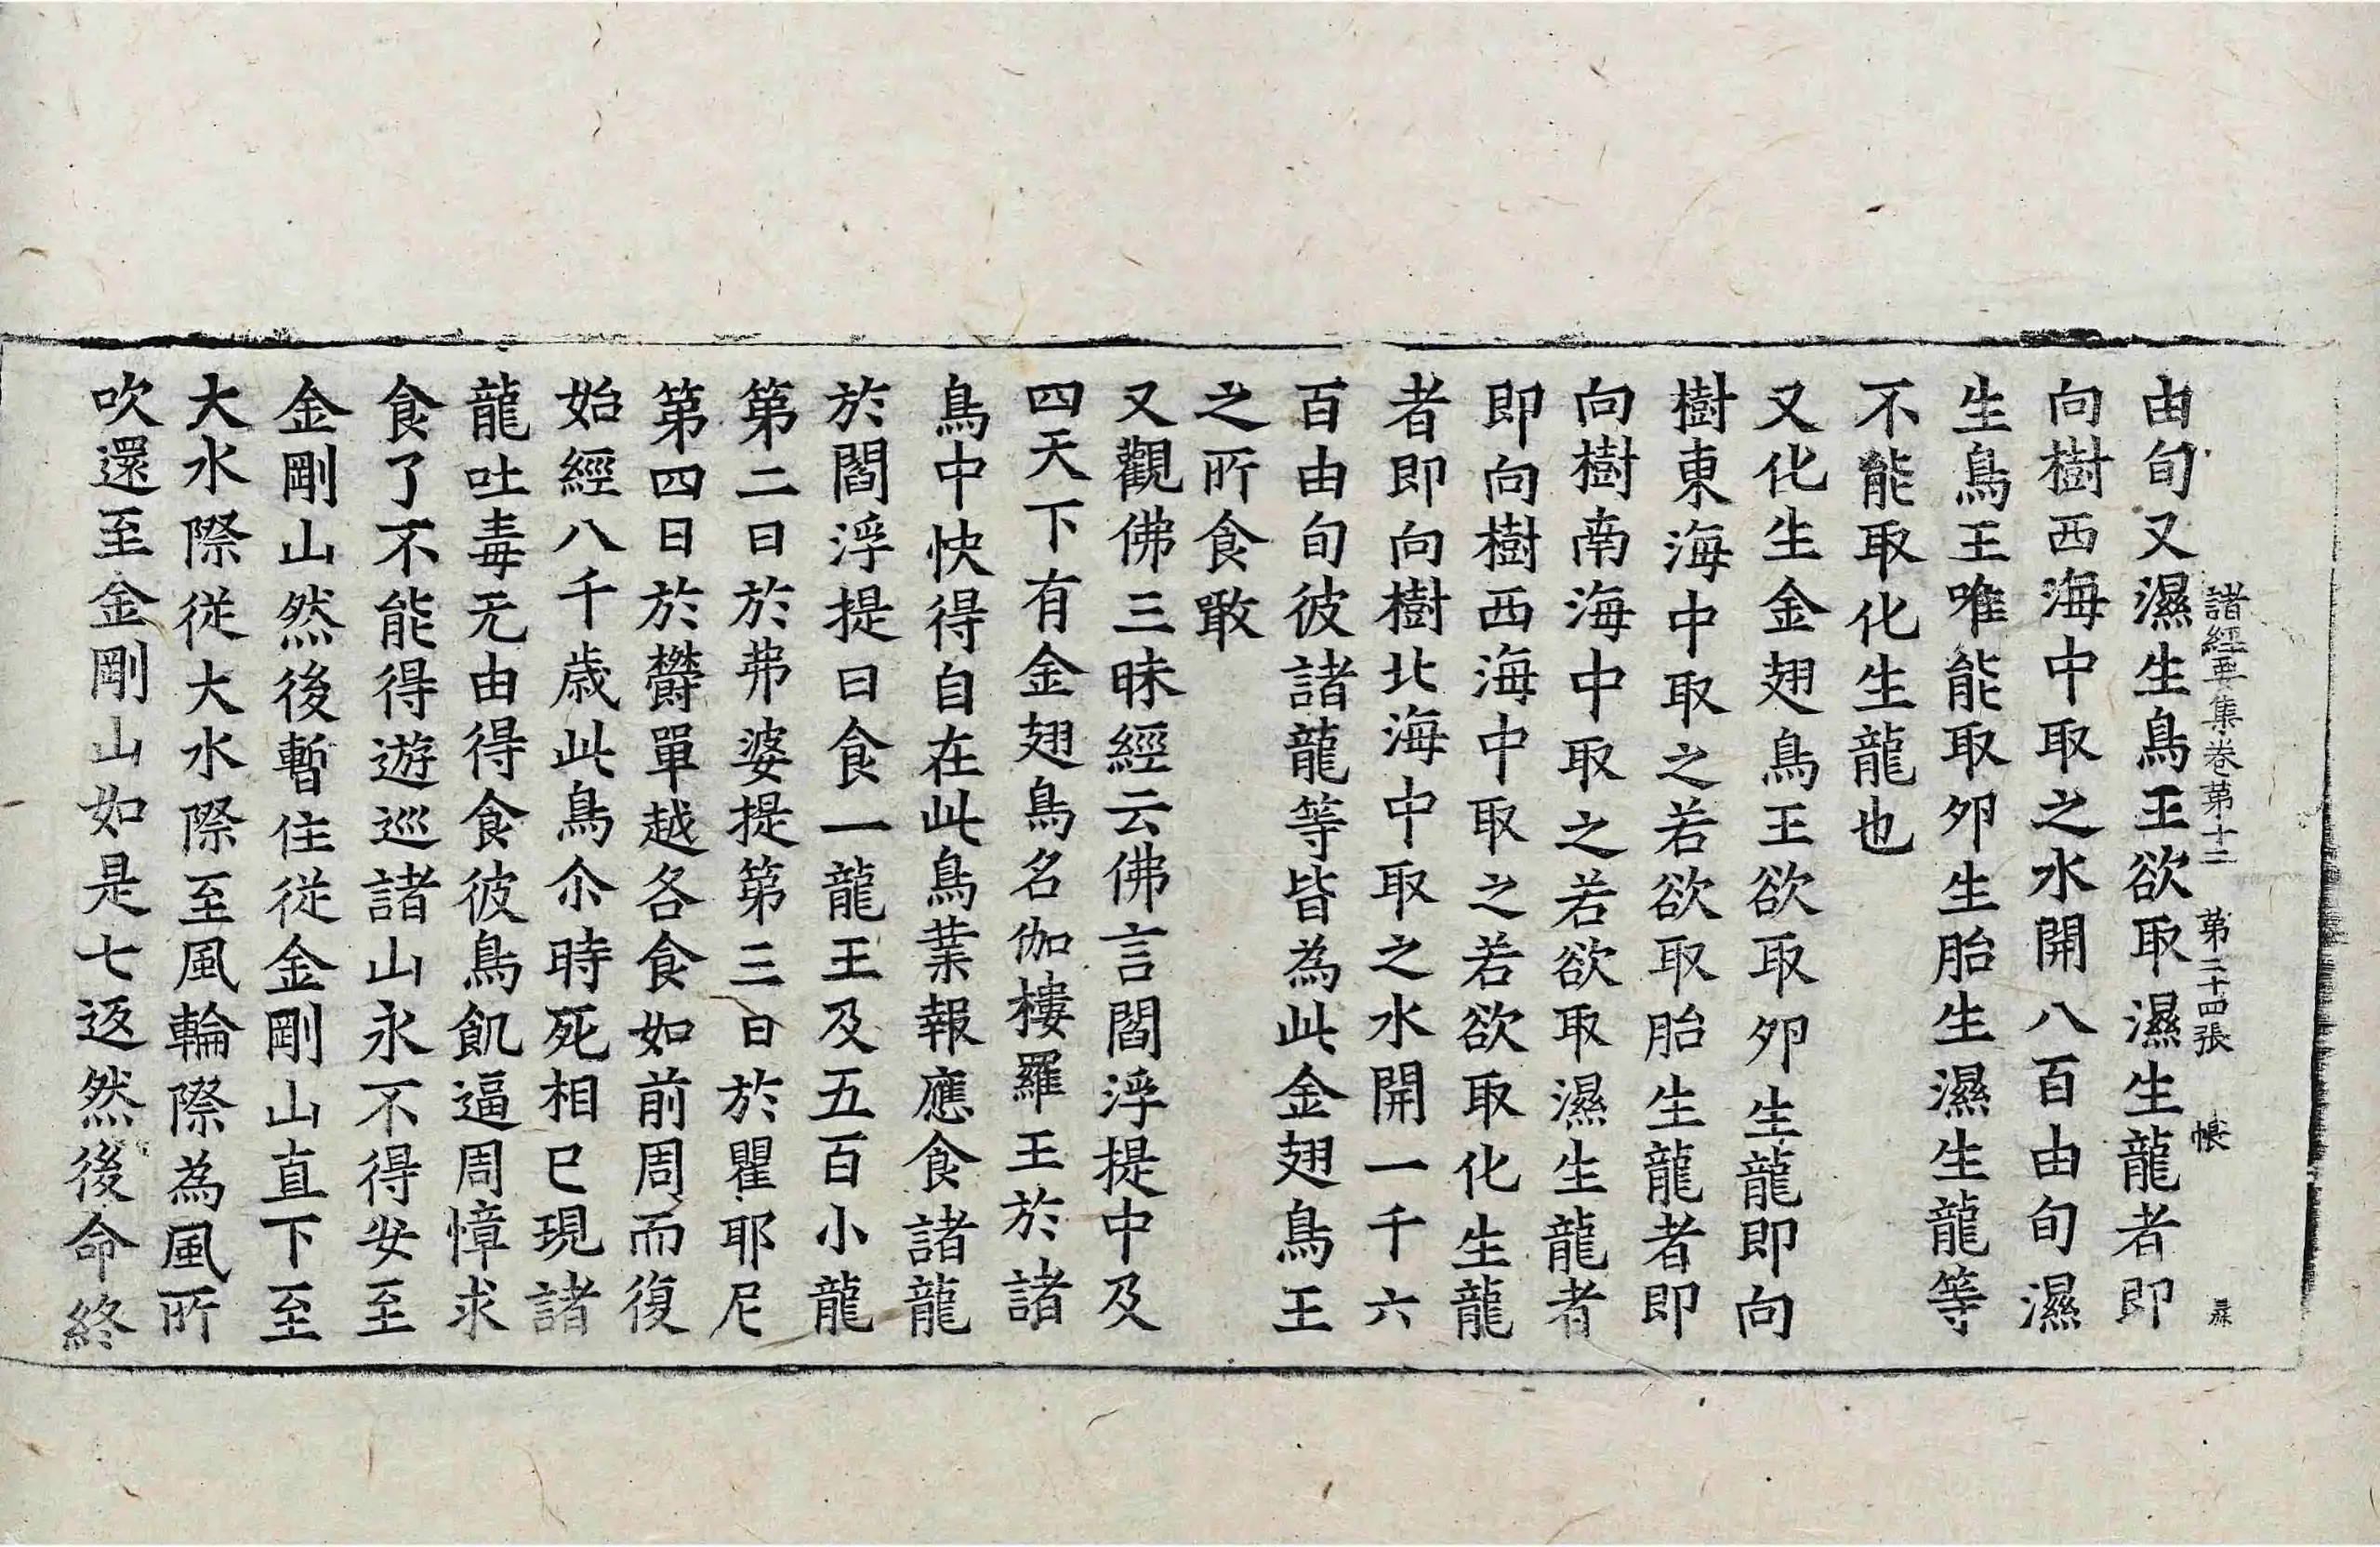 由旬又濕生鳥王欲取濕生龍者即
諸經要集卷第十二 第二十四張 帳
向樹西海中取之水開八百由旬濕
生鳥王唯能取夘生胎生濕生龍等
不能取化生龍也
又化生金翅鳥王欲取夘生龍即向
樹東海中取之若欲取胎生龍者即
向樹南海中取之若欲取濕生龍者
即向樹西海中取之若欲取化生龍
者即向樹北海中取之水開一千六
百由旬彼諸龍等皆為此金翅鳥王
之所食噉
又觀佛三昧經云佛言閻浮提中及
四天下有金翅鳥名伽樓羅王於諸
鳥中快得自在此鳥業報應食諸龍
於閻浮提日食一龍王及五百小龍
第二日於弗婆提第三日於瞿耶尼
第四日於欝單越各食如前周而復
始經八千歲此鳥尒時死相已現諸
龍吐毒无由得食彼鳥飢逼周慞求
食了不能得遊巡諸山永不得安至
金剛山然後暫住從金剛山直下至
大水際從大水際至風輪際為風所
吹還至金剛山如是七返然後命終